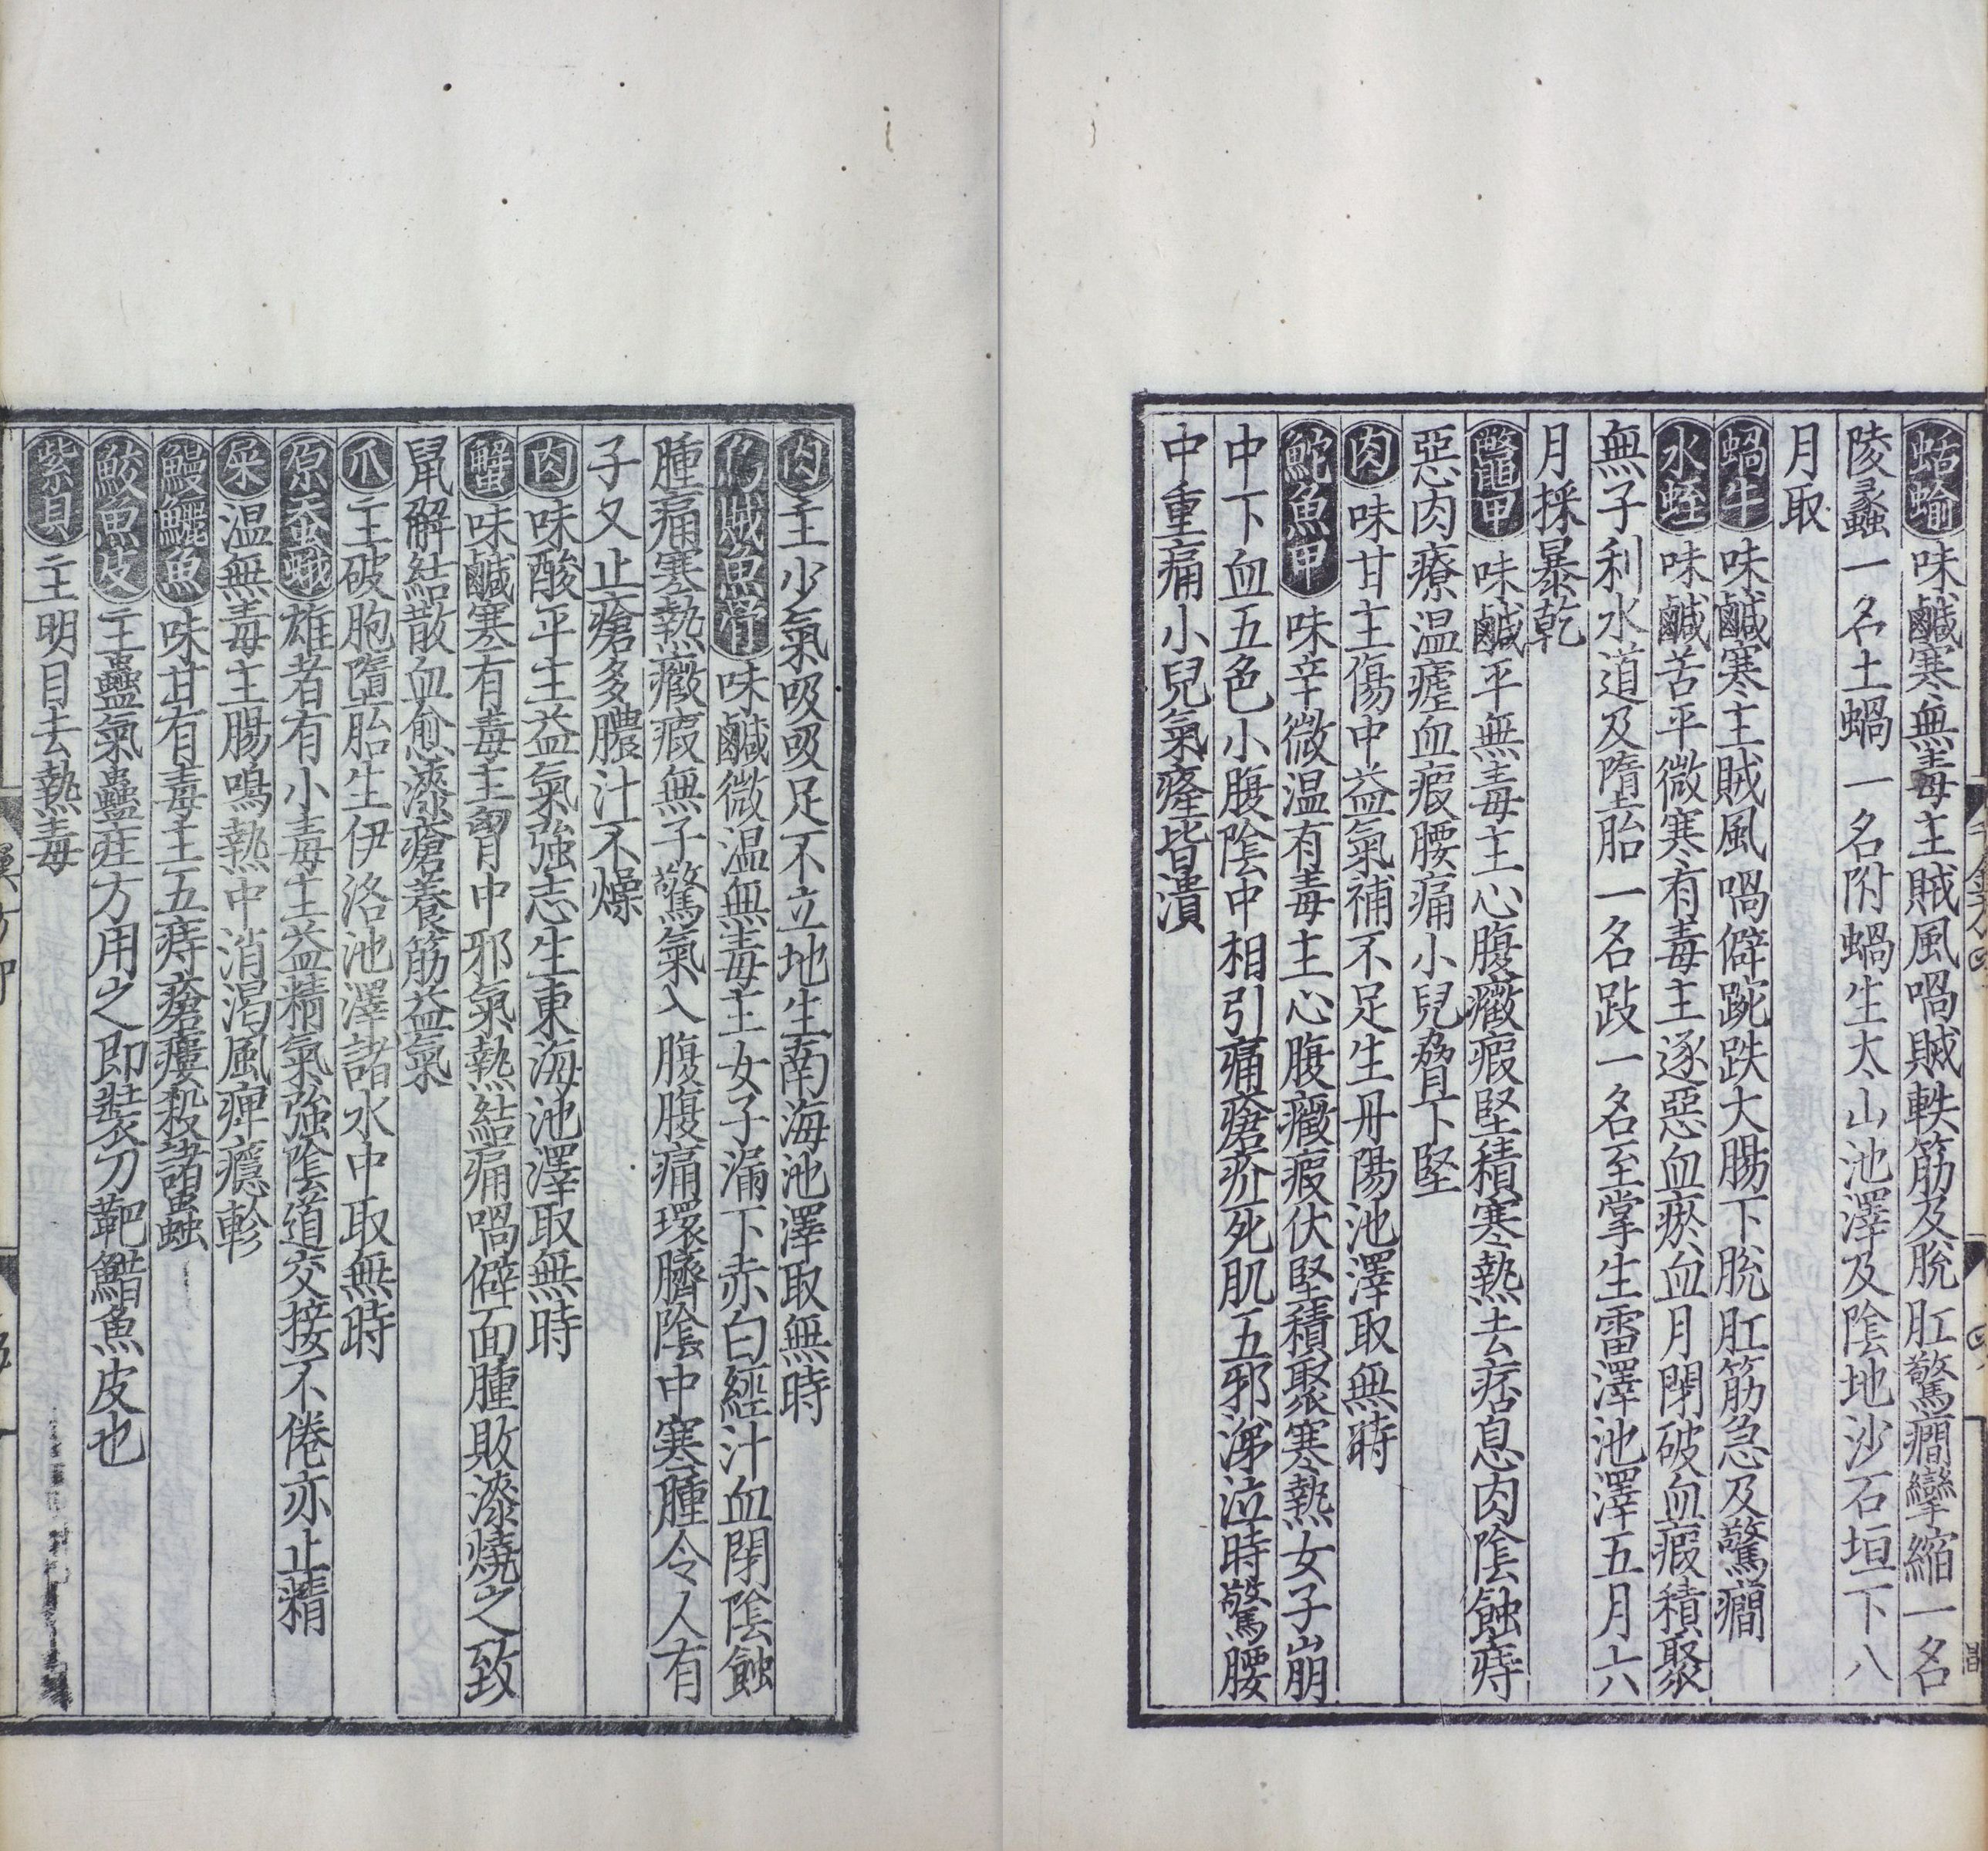 蛞蝓味鹹寒無毒主賊風喎賊軼筋及脫肛驚癇攣縮一名
陵蠡一名土蝸一名附蝸生太山池澤及陰地沙石垣下八
月取
蝸牛味鹹寒主賊風喎僻踠跌大腸下脫肛筋急及驚癇
水蛭味鹹苦平微寒有毒主逐惡血瘀血月閉破血瘕積聚
無子利水道及隋胎一名蚑一名至掌生雷澤池澤五月六
月採暴乾
鼈甲味鹹平無毒主心腹癥瘕堅積寒熱去痞息肉陰蝕痔
惡肉療温瘧血瘕腰痛小兒脅下堅
肉味甘主傷中益氣補不足生丹陽池澤取無時
鮀魚甲味辛微温有毒主心腹癥瘕伏堅積聚寒熱女子崩
中下血五色小腹陰中相引痛瘡疥死肌五邪涕泣時驚腰
中重痛小兒氣癃皆潰
肉主少氣吸吸足不立地生南海池澤取無時
烏賊魚骨味鹹微温無毒主女子漏下赤白經汁血閉陰蝕
腫痛寒熱癥瘕無子驚氣入腹腹痛環臍陰中寒腫令人有
子又止瘡多膿汁不燥
肉味酸平主益氣強志生東海池澤取無時
蟹味鹹寒有毒主胷中邪氣熱結痛喎僻面腫敗漆燒之致
鼠解結散血愈漆瘡養筋益氣
爪主破胞墮胎生伊洛池澤諸水中取無時
原蚕蛾雄者有小毒主益精氣強陰道交接不倦亦止精
屎温無毒主腸鳴熱中消渴風痺癮軫
鰻鱺魚味甘有毒主五痔瘡瘻殺諸蟲
鮫魚皮主蠱氣蠱疰方用之即裝刀靶䱜魚皮也
紫貝主明目去熱毒